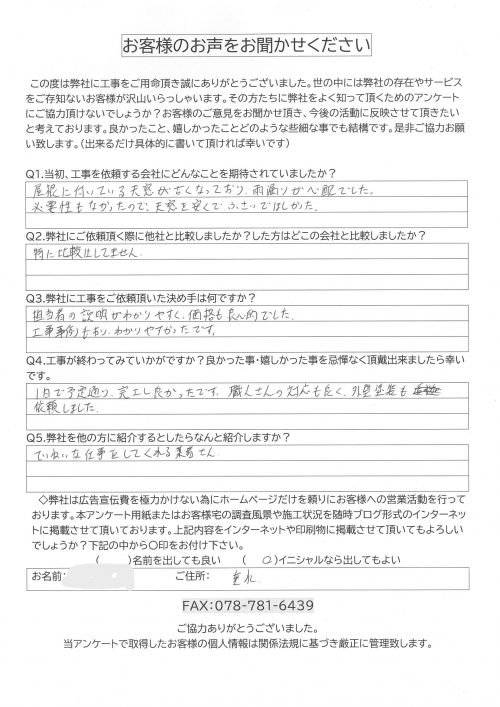 お客様のお声をお聞かせください
この度は弊社に工事をご用命頂き誠にありがとうございました。世の中には弊社の存在やサービス
をご存知ないお客様が沢山いらっしゃいます。その方たちに弊社をよく知って頂くためのアンケート
にご協力頂けないでしょうか？お客様のご意見をお聞かせ頂き、今後の活動に反映させて頂きたい
と考えております。良かったこと、嬉しかったことどのような些細な事でも結構です。是非ご協力お願
い致します。（出来るだけ具体的に書いて頂ければ幸いです）
Q1.当初、工事を依頼する会社にどんなことを期待されていましたか？
屋根に付いている天窓が古くなっており、雨漏りが心配でした。
必要性もなかったので、天窓を安くでふさいでほしかった。
Q2.弊社にご依頼頂く際に他社と比較しましたか？した方はどこの会社と比較しましたか？
特に比較はしてません。
Q3.弊社に工事をご依頼頂いた決め手は何ですか？
担当者の説明がわかりやすく、価格も良心的でした。
工事事例もあり、わかりやすかったです。
Q4.工事が終わってみていかがですか？良かった事・嬉しかった事を忌憚なく頂戴出来ましたら幸い
です。
1日で予定通り、完工し良かったです。職人さんの対応も良く、外壁塗装も
依頼しました。
Q5.弊社を他の方に紹介するとしたらなんと紹介しますか？
ていねいな仕事をしてくれる業者さん。
◇弊社は広告宣伝費を極力かけない為にホームページだけを頼りにお客様への営業活動を行って
おります。本アンケート用紙またはお客様宅の調査風景や施工状況を随時ブログ形式のインターネッ
トに掲載させて頂いております。上記内容をインターネットや印刷物に掲載させて頂いてもよろしい
でしょうか？下記の中から〇印をお付け下さい。
（　　）名前を出しても良い　（　○）イニシャルなら出してもよい
お名前：　ご住所：　垂水
FAX:078-781-6439
ご協力ありがとうございました。
当アンケートで取得したお客様の個人情報は関係法規に基づき厳正に管理致します。